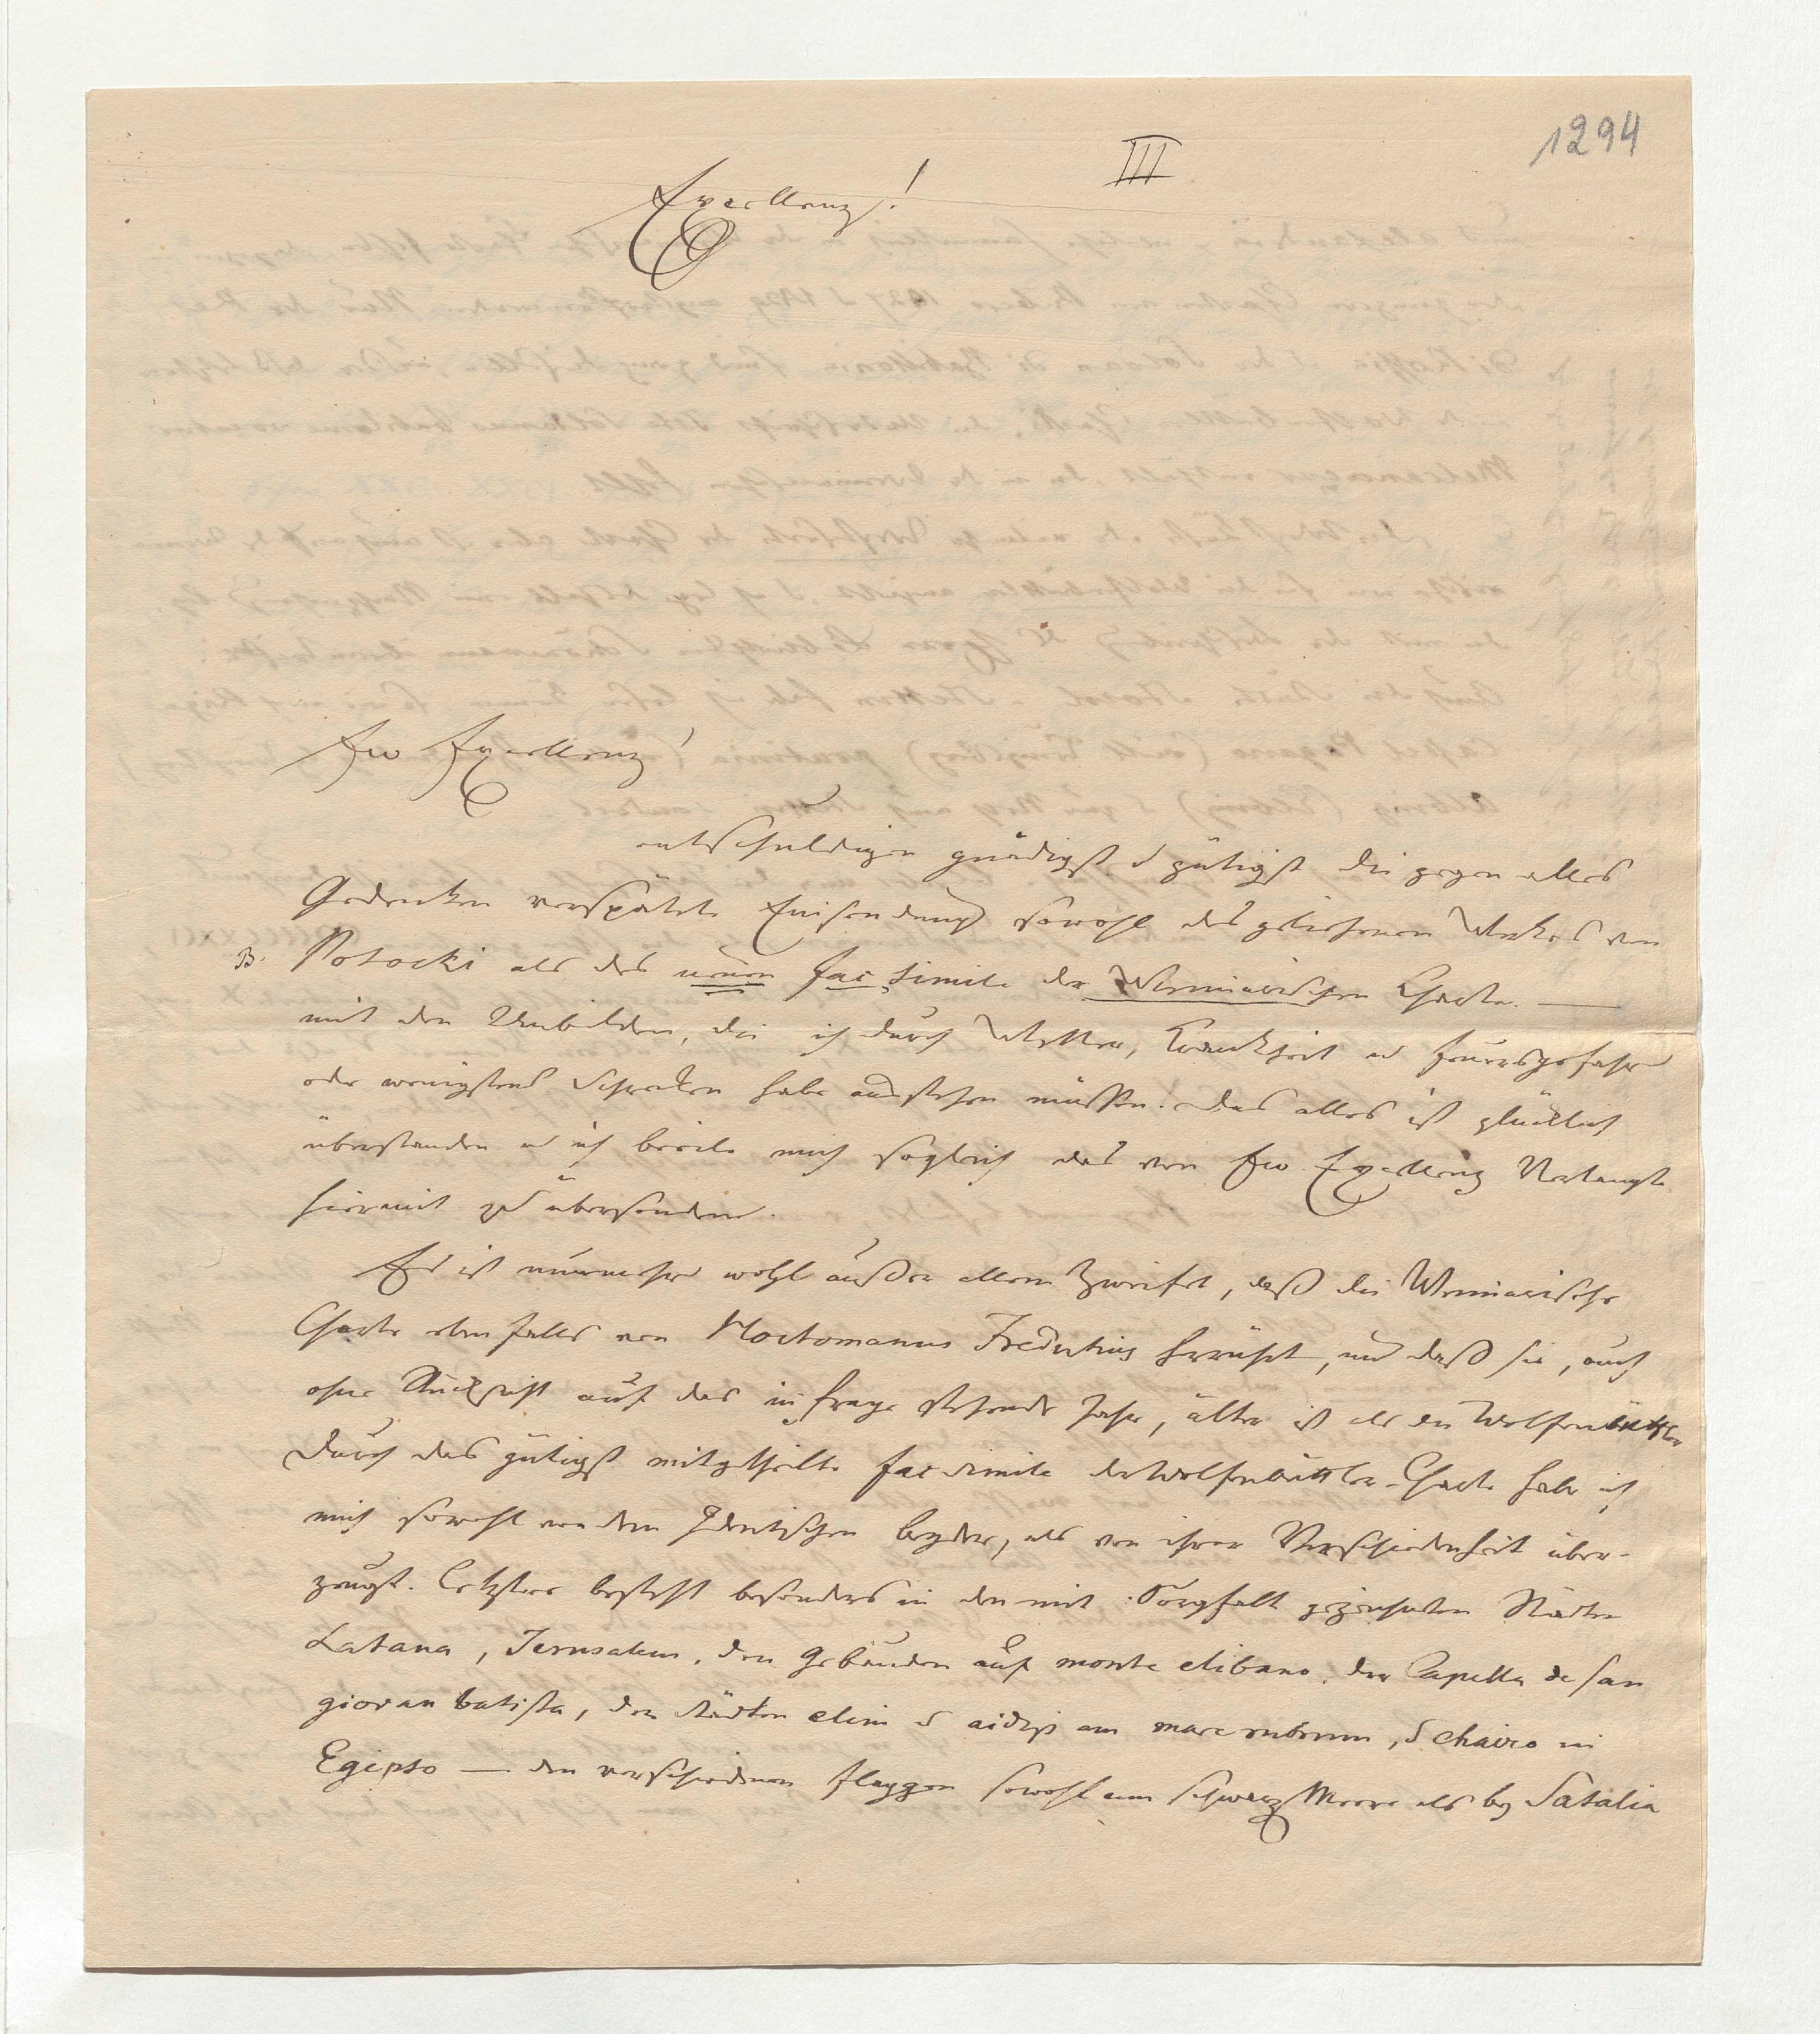 1294
III
Excellenz!
Ew Excellenz!
entschuldigen gnädigst u gütigst die gegen alles
Gedenken verspätete Einsendung sowohl des geliehenen Werkes von
B. Potocki als des neuen fac simile der Weimarischen Charte. —
mit den Unbilden, die ich durch Wetter, Krankheit u Feuersgefahr
oder wenigstens Schrecken habe ausstehen müssen. Das alles ist glücklich
überstanden u ich beeile mich sogleich das von Ew. Excellenz Verlangte
hiermit zu übersenden.
Es ist nunmehr wohl außer allem Zweifel, daß die Weimarische
Charte ebenfalls von Hoctomanus Fredutius herrührt, und daß sie, auch
ohne Rücksicht auf das in Frage stehende Jahr, älter ist als die Wolfenbüttler
Durch das gütigst mitgetheilte facsimile der Wolfenbüttler-Charte habe ich
mich sowohl von dem Identischen beyder, als von ihrer Verschiedenheit über-
zeugt. Letztere besteht besonders in den mit Sorgfalt gezeichneten Städten
Latana, Jerusalem, den Gebäuden auf monte elibano, der Capella de san
giovan batista, den Städten elim u aidip am mare rubrum, u chairo in
Egipto — den verschiedenen Flaggen sowohl am schwarz Meere als by Satalia